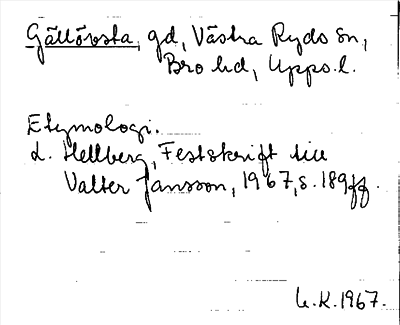 Gällövsta, gd, Västra Ryds sn,
Bro hd, Upps. l.
Etymologi.
L. Hellberg, Festskrift till
Valter Jansson, 1967, s. 189ff.
U.K. 1967.